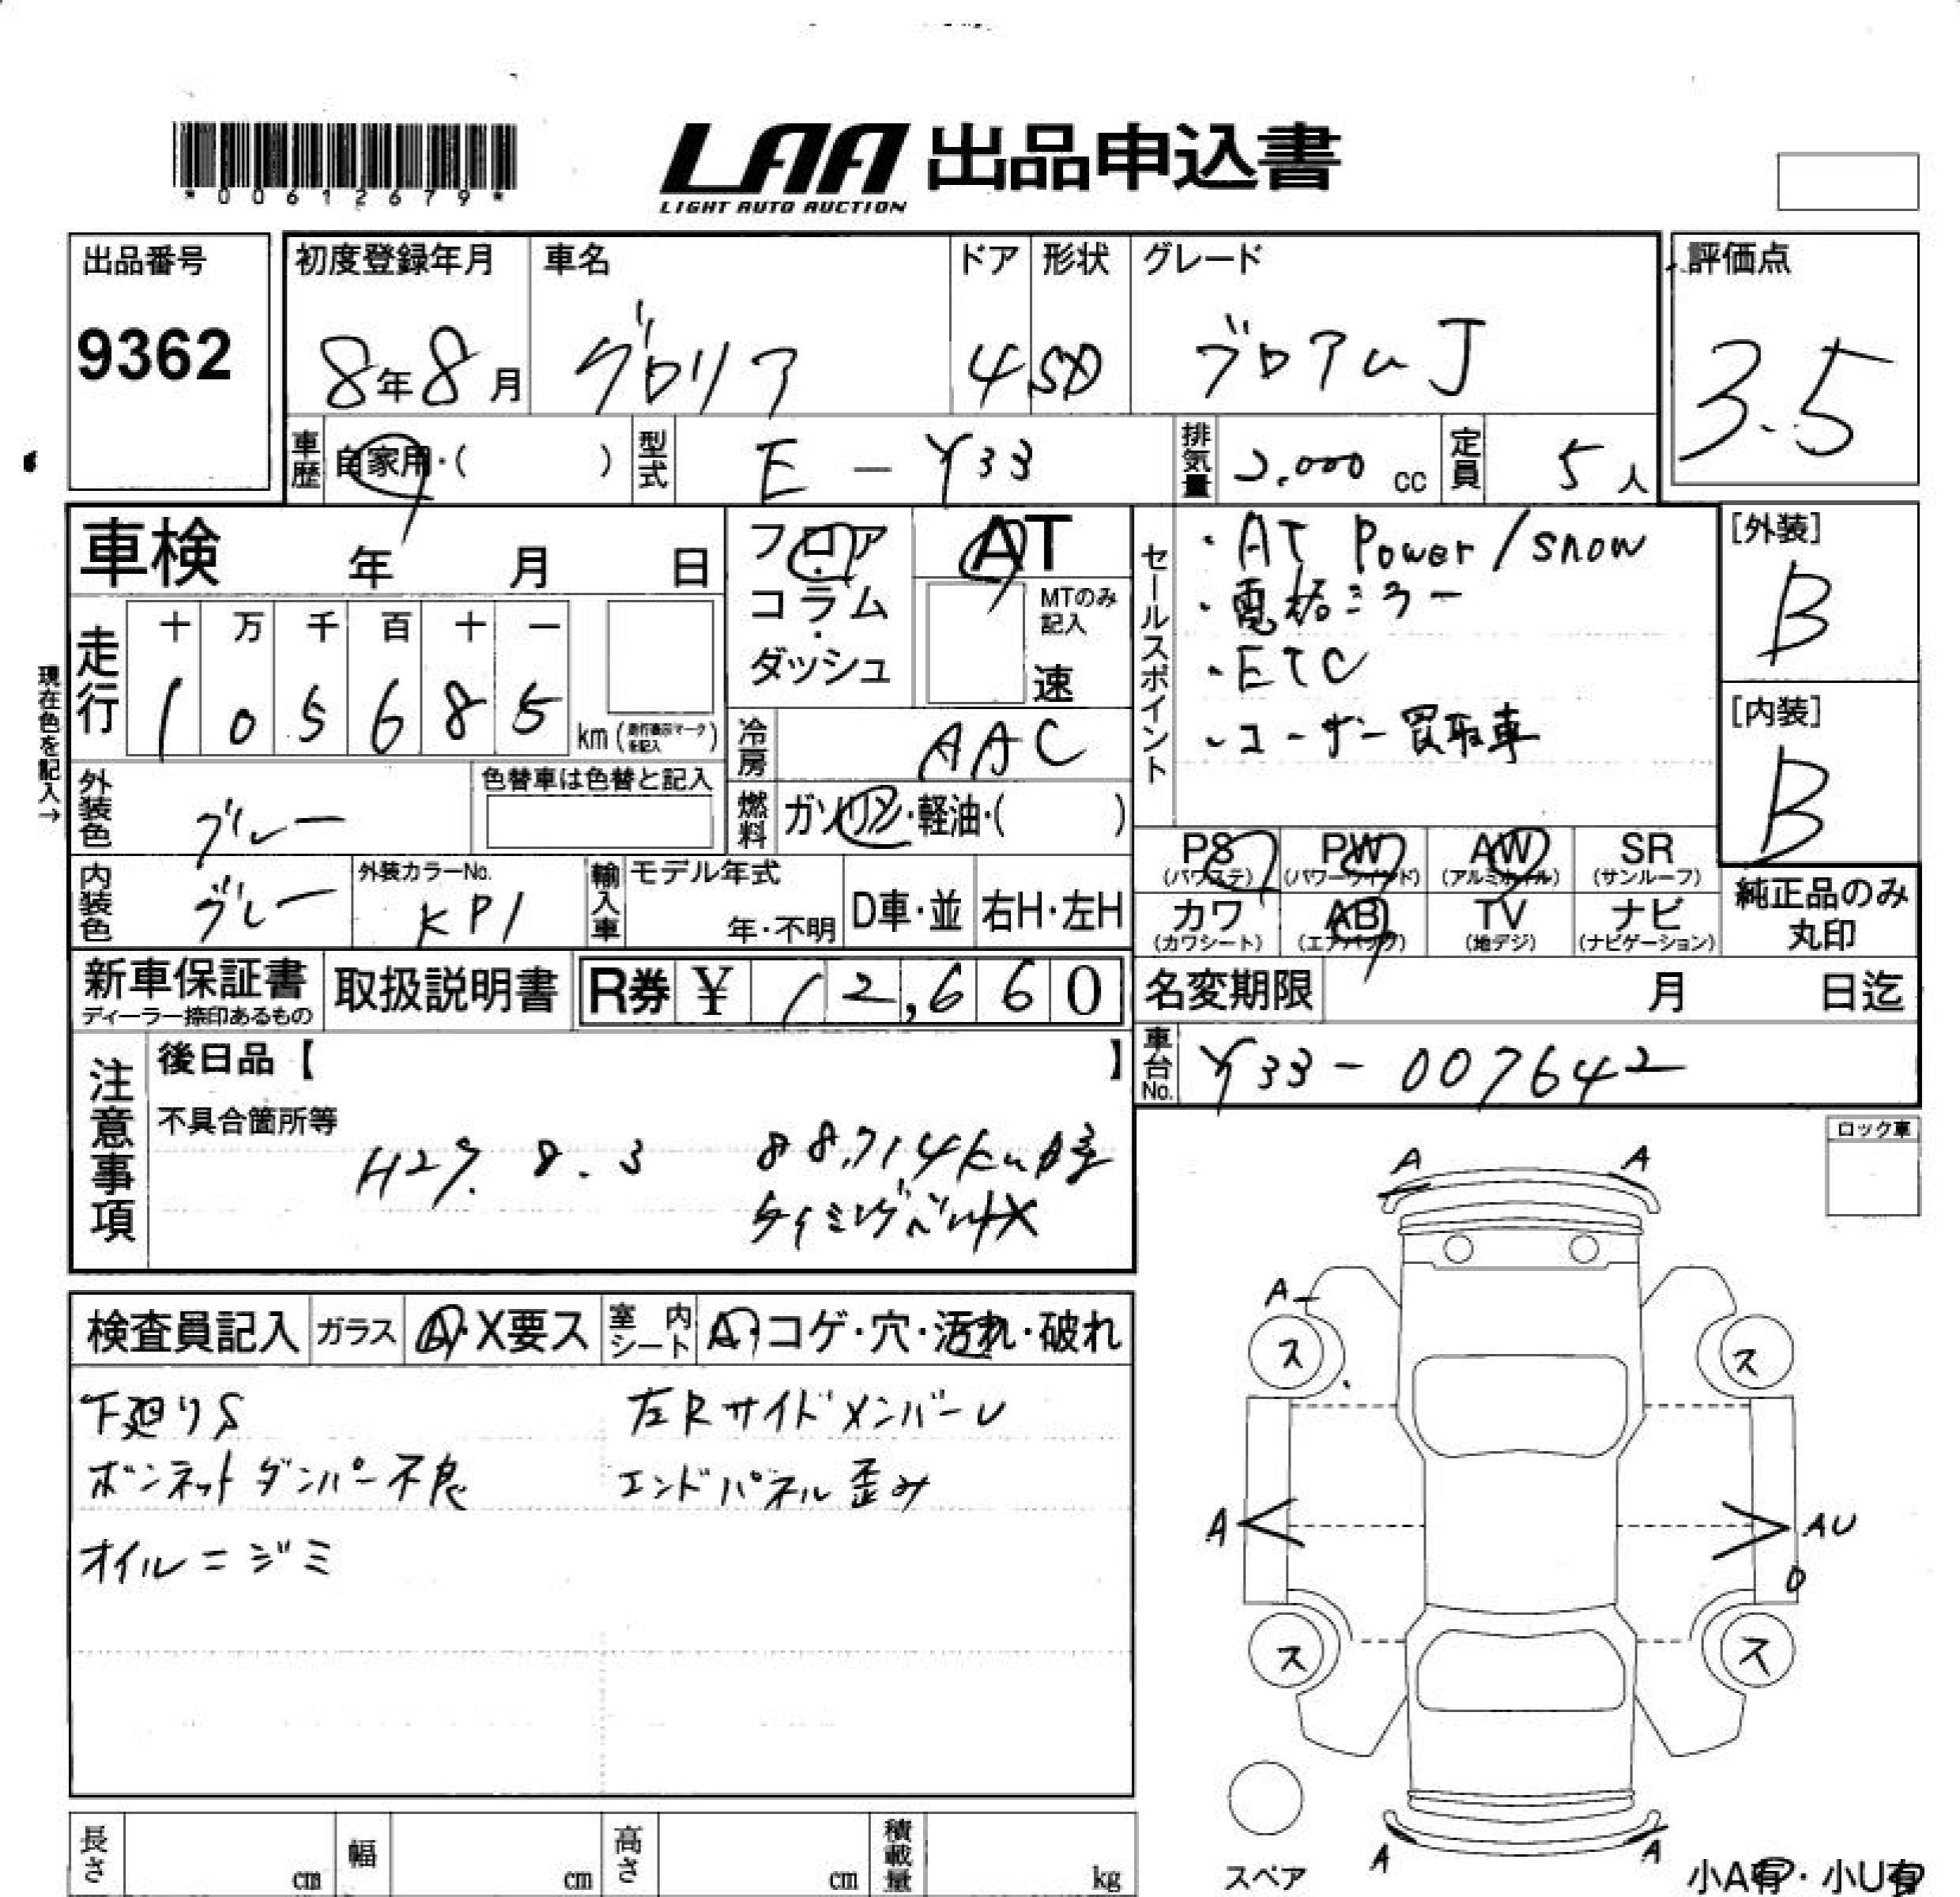 *00612679*
LAA 出品申込書
LIGHT AUTO AUCTION
出品番号
9362
初度登録年月
8年8月
車名
グロリア
ドア
4
形状
SD
グレード
ブロアムJ
評価点
3.5
車歴
自家用・( )
型式
E-Y33
排気量
2.000 cc
定員
5人
車検 年 月 日
フロア・コラム・ダッシュ
AT
MTのみ記入
速
セールスポイント
・AT Power/snow
・電格ミラー
・ETC
・ユーザー買取車
[外装]
B
[内装]
B
現在色を記入→
走行
十 万 千 百 十 一
1 0 5 6 8 5
km(走行表示マークを記入)
冷房
AAC
燃料
ガソリン・軽油・( )
外装色
グレー
色替車は色替と記入
内装色
グレー
外装カラーNo.
KP1
輸入車
モデル年式
年・不明
D車・並
右H・左H
PS
(パワステ)
PW
(パワーウインド)
AW
(アルミホイル)
SR
(サンルーフ)
カワ
(カワシート)
AB
(エアバック)
TV
(地デジ)
ナビ
(ナビゲーション)
純正品のみ
丸印
新車保証書
ディーラー捺印あるもの
取扱説明書
R券 ¥ 12,660
名変期限 月 日迄
車台No.
Y33-007642
注意事項
後日品【 】
不具合箇所等
H27.8.3 88,714km時
タイミングベルトX
ロック車
検査員記入
ガラス
A・X要ス
室内シート
A・コゲ・穴・汚れ・破れ
下廻りS
左Rサイドメンバー U
ボンネットダンパー不良
エンドパネル歪み
オイルニジミ
A A
A
ス ス
A
AU
ス ス
スペア
A A
小A有・小U有
長さ cm
幅 cm
高さ cm
積載量 kg